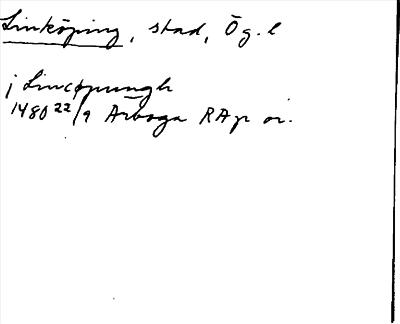 Linköping, stad, Ög. l
j Lincøpungh
1480 22/9 Arboga RAp or.